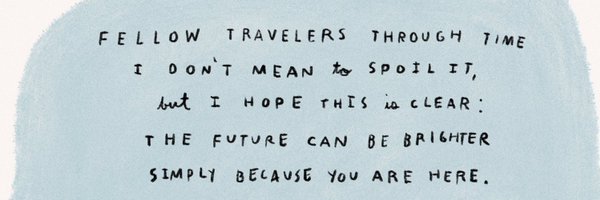 FELLOW TRAVELERS THROUGH TIME
I DON'T MEAN to SPOIL IT,
but I HOPE THIS is CLEAR:
THE FUTURE CAN BE BRIGHTER
SIMPLY BECAUSE YOU ARE HERE.